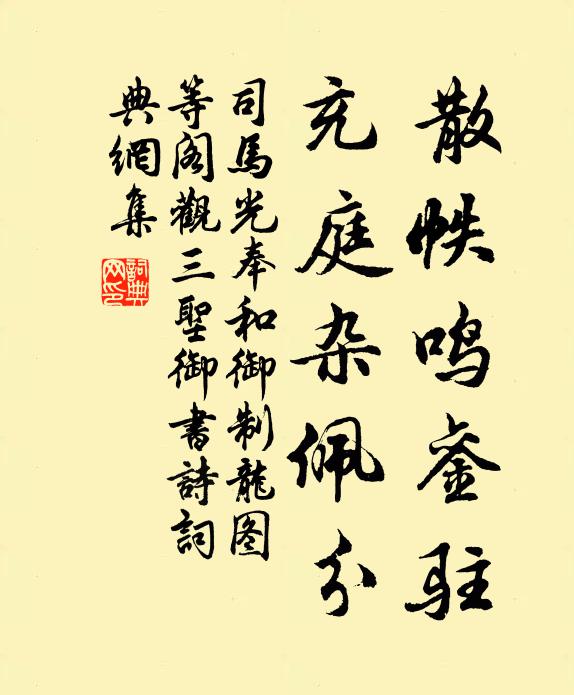 散帙鸣銮驻
充庭杂佩分
司馬光奉和御制龍图
等阁觀三聖御書詩詞
典網集
詞典网印